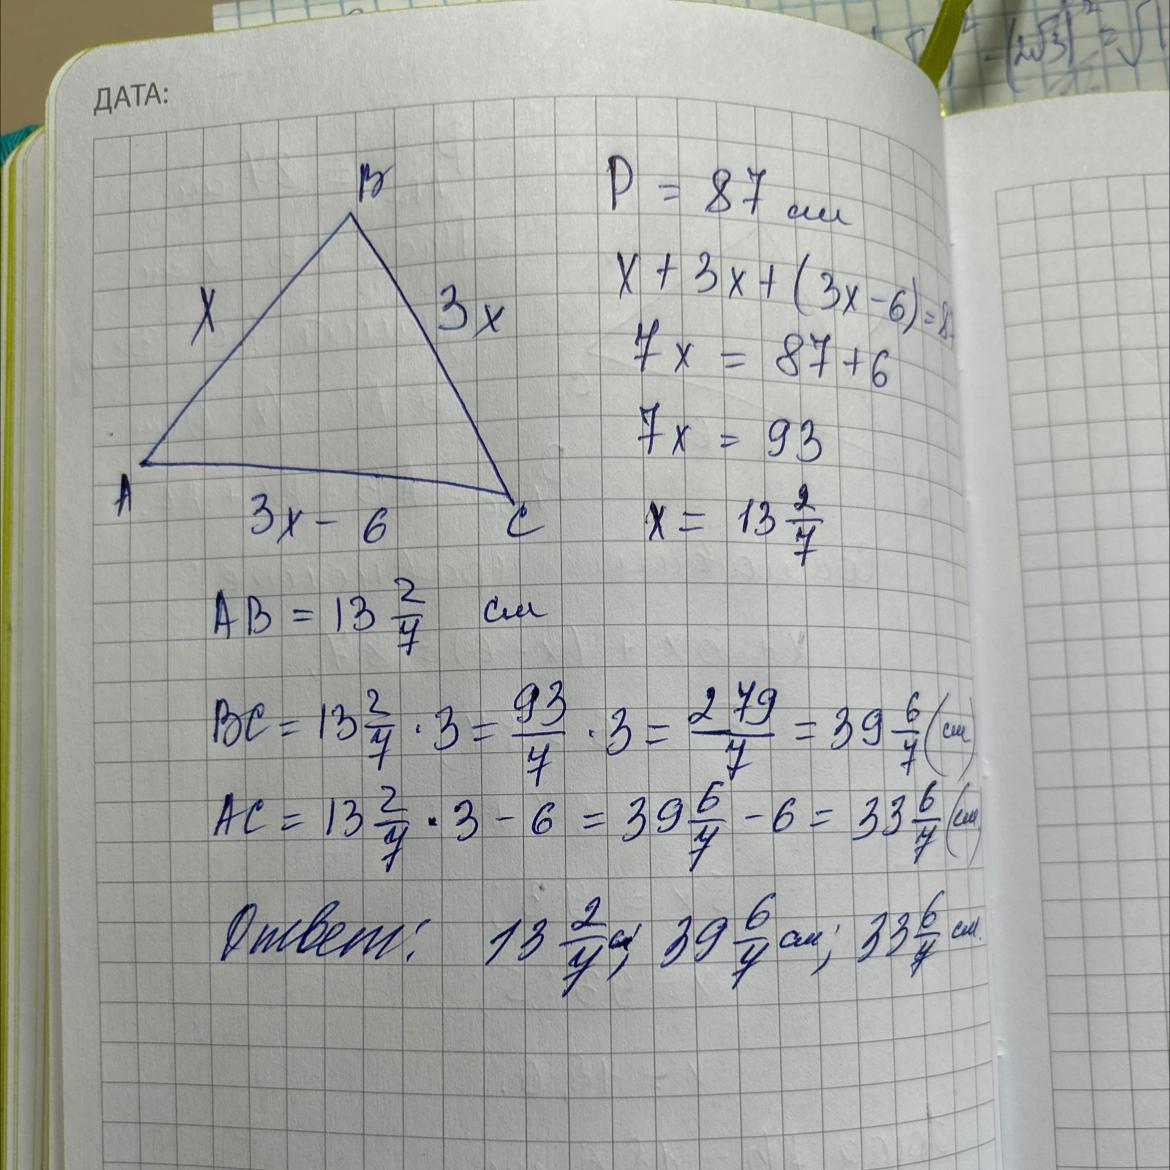 ДАТА:
- (2√3)² = √
B
P = 87 см
x
3x
x + 3x + (3x - 6) = 8
7x = 87 + 6
7x = 93
A
3x - 6
C
x = 13 2/7
AB = 13 2/7 см
BC = 13 2/7 · 3 = 93/7 · 3 = 279/7 = 39 6/7 (см)
AC = 13 2/7 · 3 - 6 = 39 6/7 - 6 = 33 6/7 (см)
Ответ: 13 2/7 см; 39 6/7 см; 33 6/7 см.